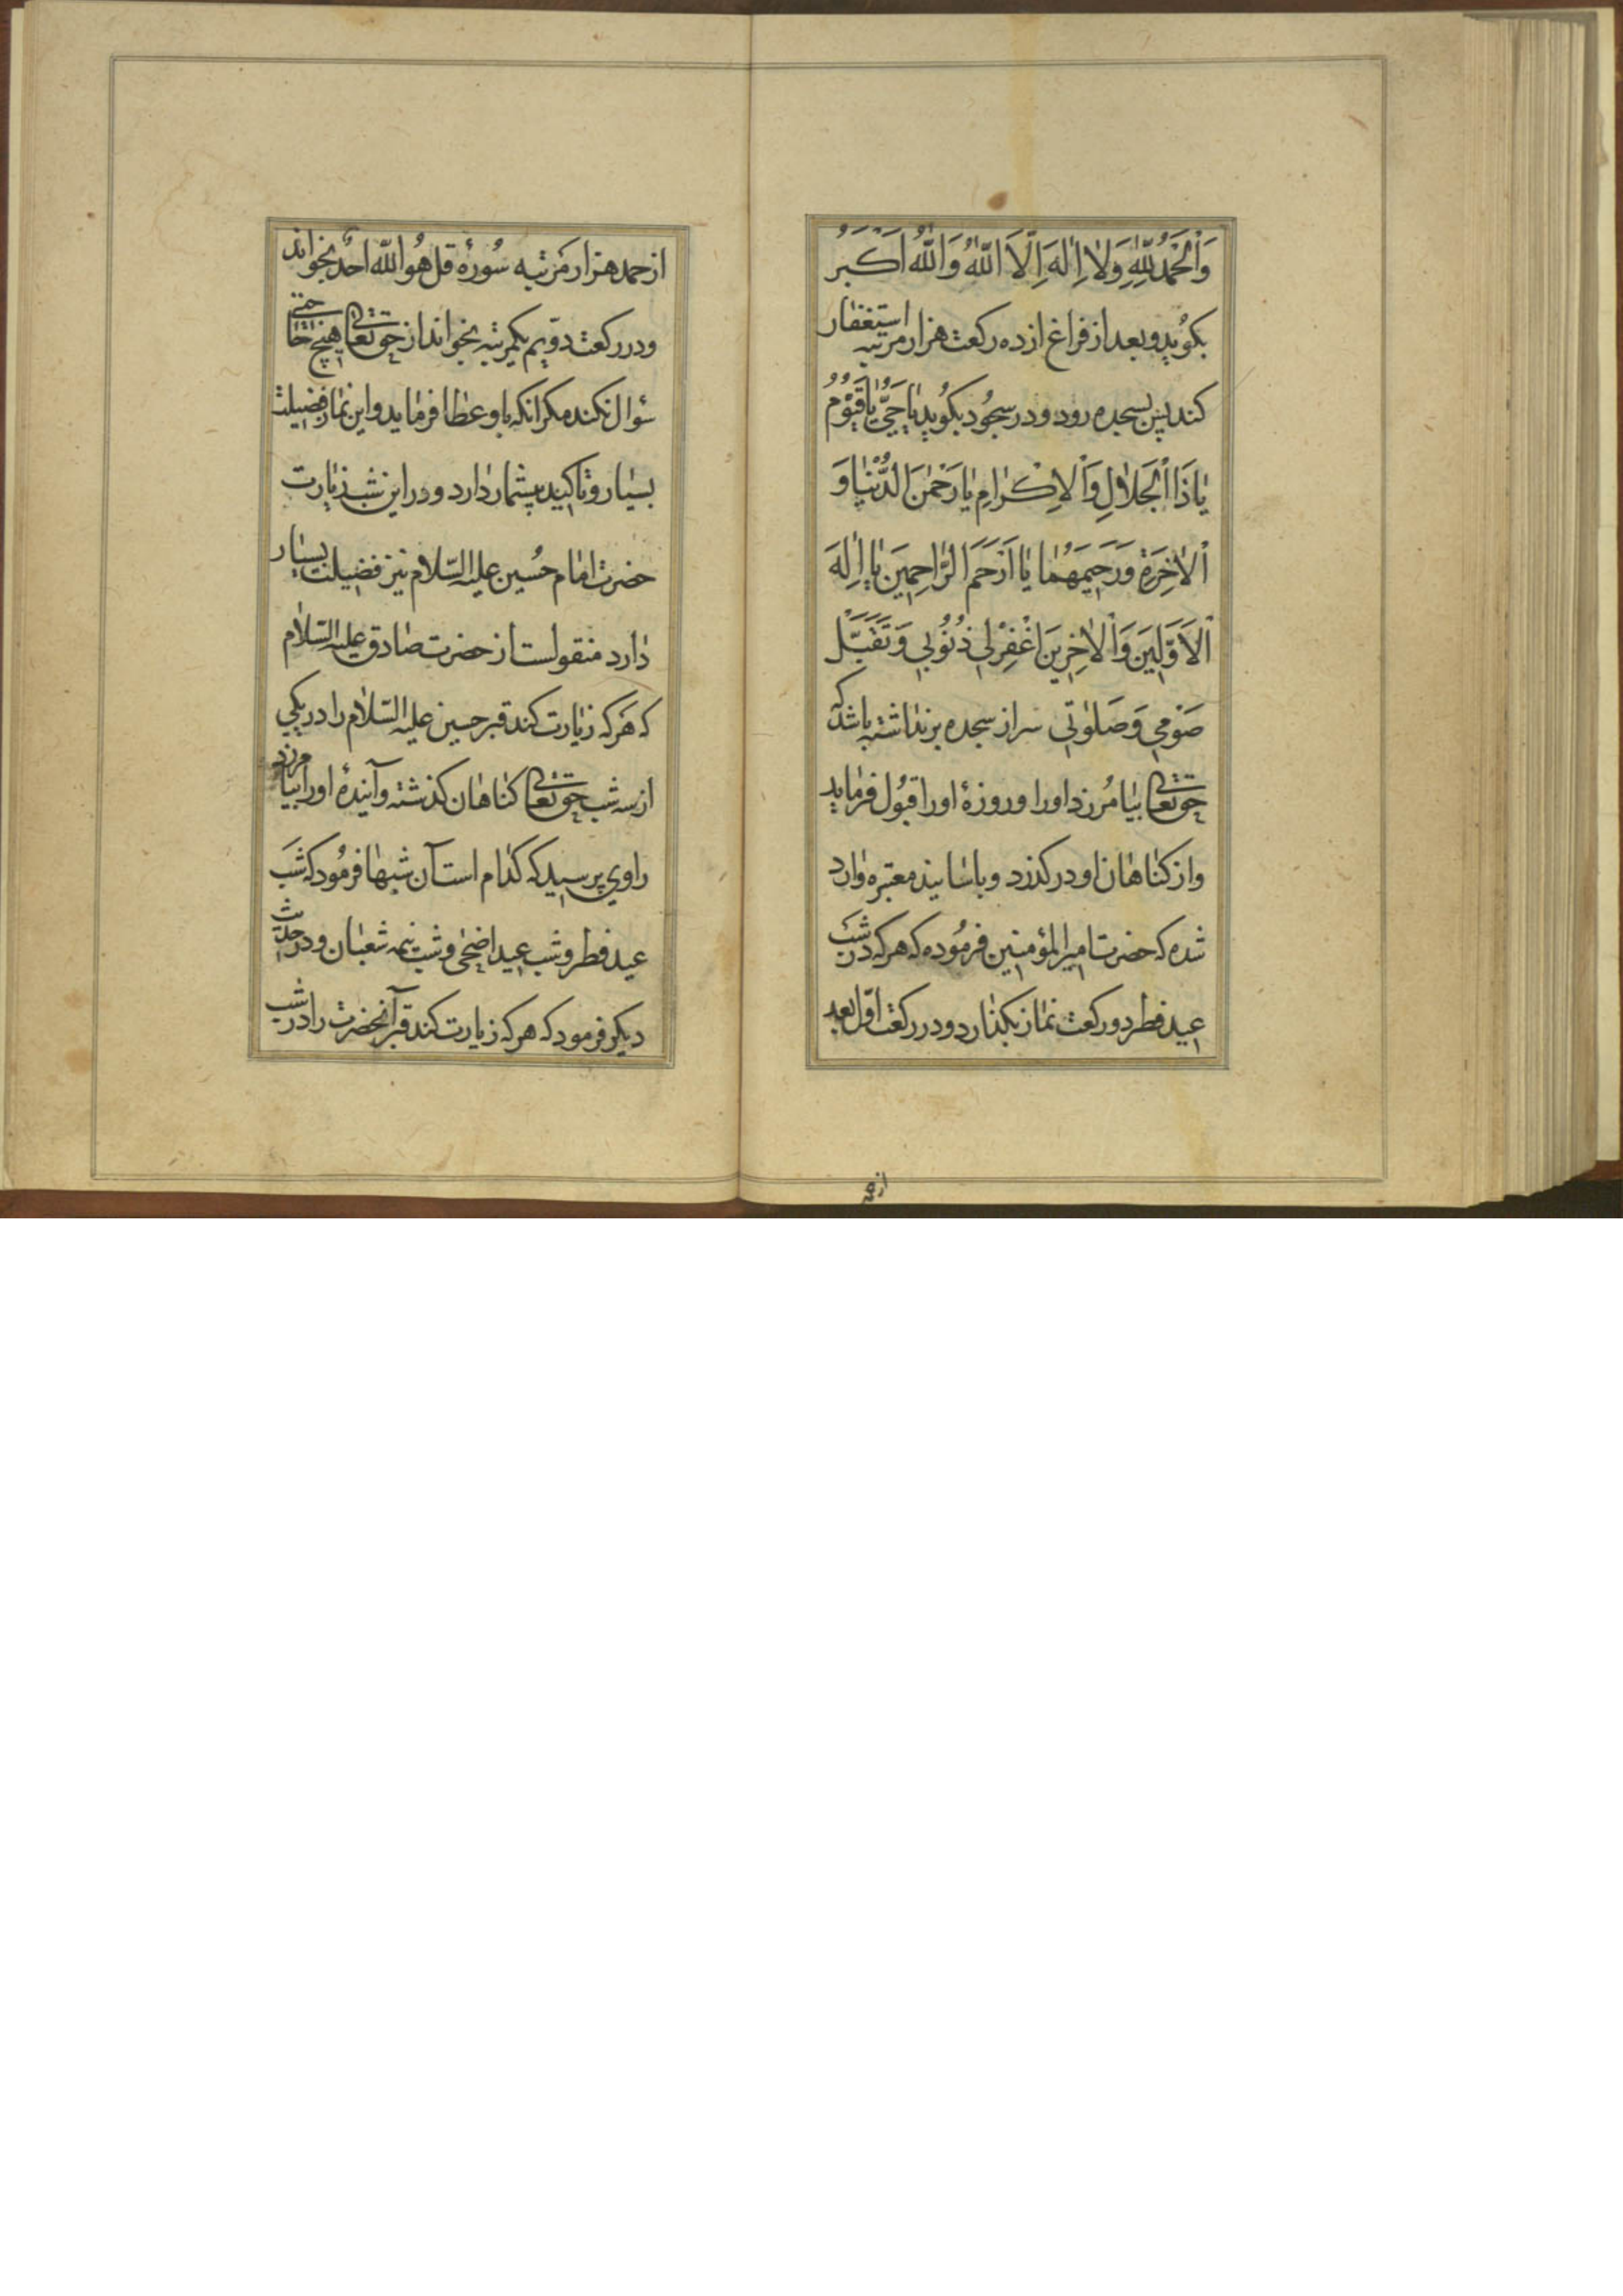 وَاَلْحَمْدُ لِلّٰهِ وَلاٰ اِلٰهَ اِلَّا اللّٰهُ وَاللّٰهُ اَکْبَرُ
بکوُید و بعد از فراغ از ده رکعت هزار مرتبه استغفار
کند پس بسجده رود و در سجُود بکوُید یٰا حَیُّ یٰا قَیُّوُمُ
یٰا ذَا اْلجَلاٰلِ وَاْلاِکْرٰامِ یٰا رَحْمٰنَ الدُّنْیٰا وَ
اْلاٰخِرَةِ وَرَحیِمَهُمٰا یٰا اَرْحَمَ الرّٰاحِمیِنَ یٰا اِلٰهَ
اْلاَوَّلیِنَ وَاْلاٰخِریِنَ اغْفِرْلیِ ذُنُوُبیِ وَتَقَبَّلْ
صَوْمیِ وَصَلوٰتیِ سر از سجده برنداشته باشد که
حق تعالی بیٰامُرزد اورا و روزهٔ اورا قبوُل فرمٰاید
و از کنٰاهٰان او درکذرد و باسٰانید معتبره وٰارد
شده که حضرت امیرالمؤمنین فرموُده که هرکه در شب
عید فطر دو رکعت نمٰاز بکذٰارد و در رکعت اوّل بعد
از حمد هزار مرتبه سُورهٔ قل هُو اللّٰه احد بخواند
و در رکعت دوّیم یکمرتبه بخواند از حق تعالی هیچ حٰاجتی
سؤال نکند مکر انکه باو عطٰا فرمٰاید و این نمٰاز فضیلت
بسیٰار و تٰاکید بیشمٰار دٰارد و در این شب زیٰارت
حضرت امٰام حُسین علیه السّلام نیز فضیلت بسیٰار
دٰارد منقولست از حضرت صٰادق علیه السّلاٰم
که هَرکه زیٰارت کند قبر حسین علیه السّلاٰم را در یکی
از سه شب حق تعالی کنٰاهٰان کذشته و آیندهٔ اورا بیٰامرزد
راوی پرسید که کدٰام است آن شبهٰا فرمُود که شَب
عید فطر و شب عید اضحٰی و شب نیمه شعبٰان و در حدیث
دیکر فرمود که هرکه زیارت کند قبر آنحضرت را در شب